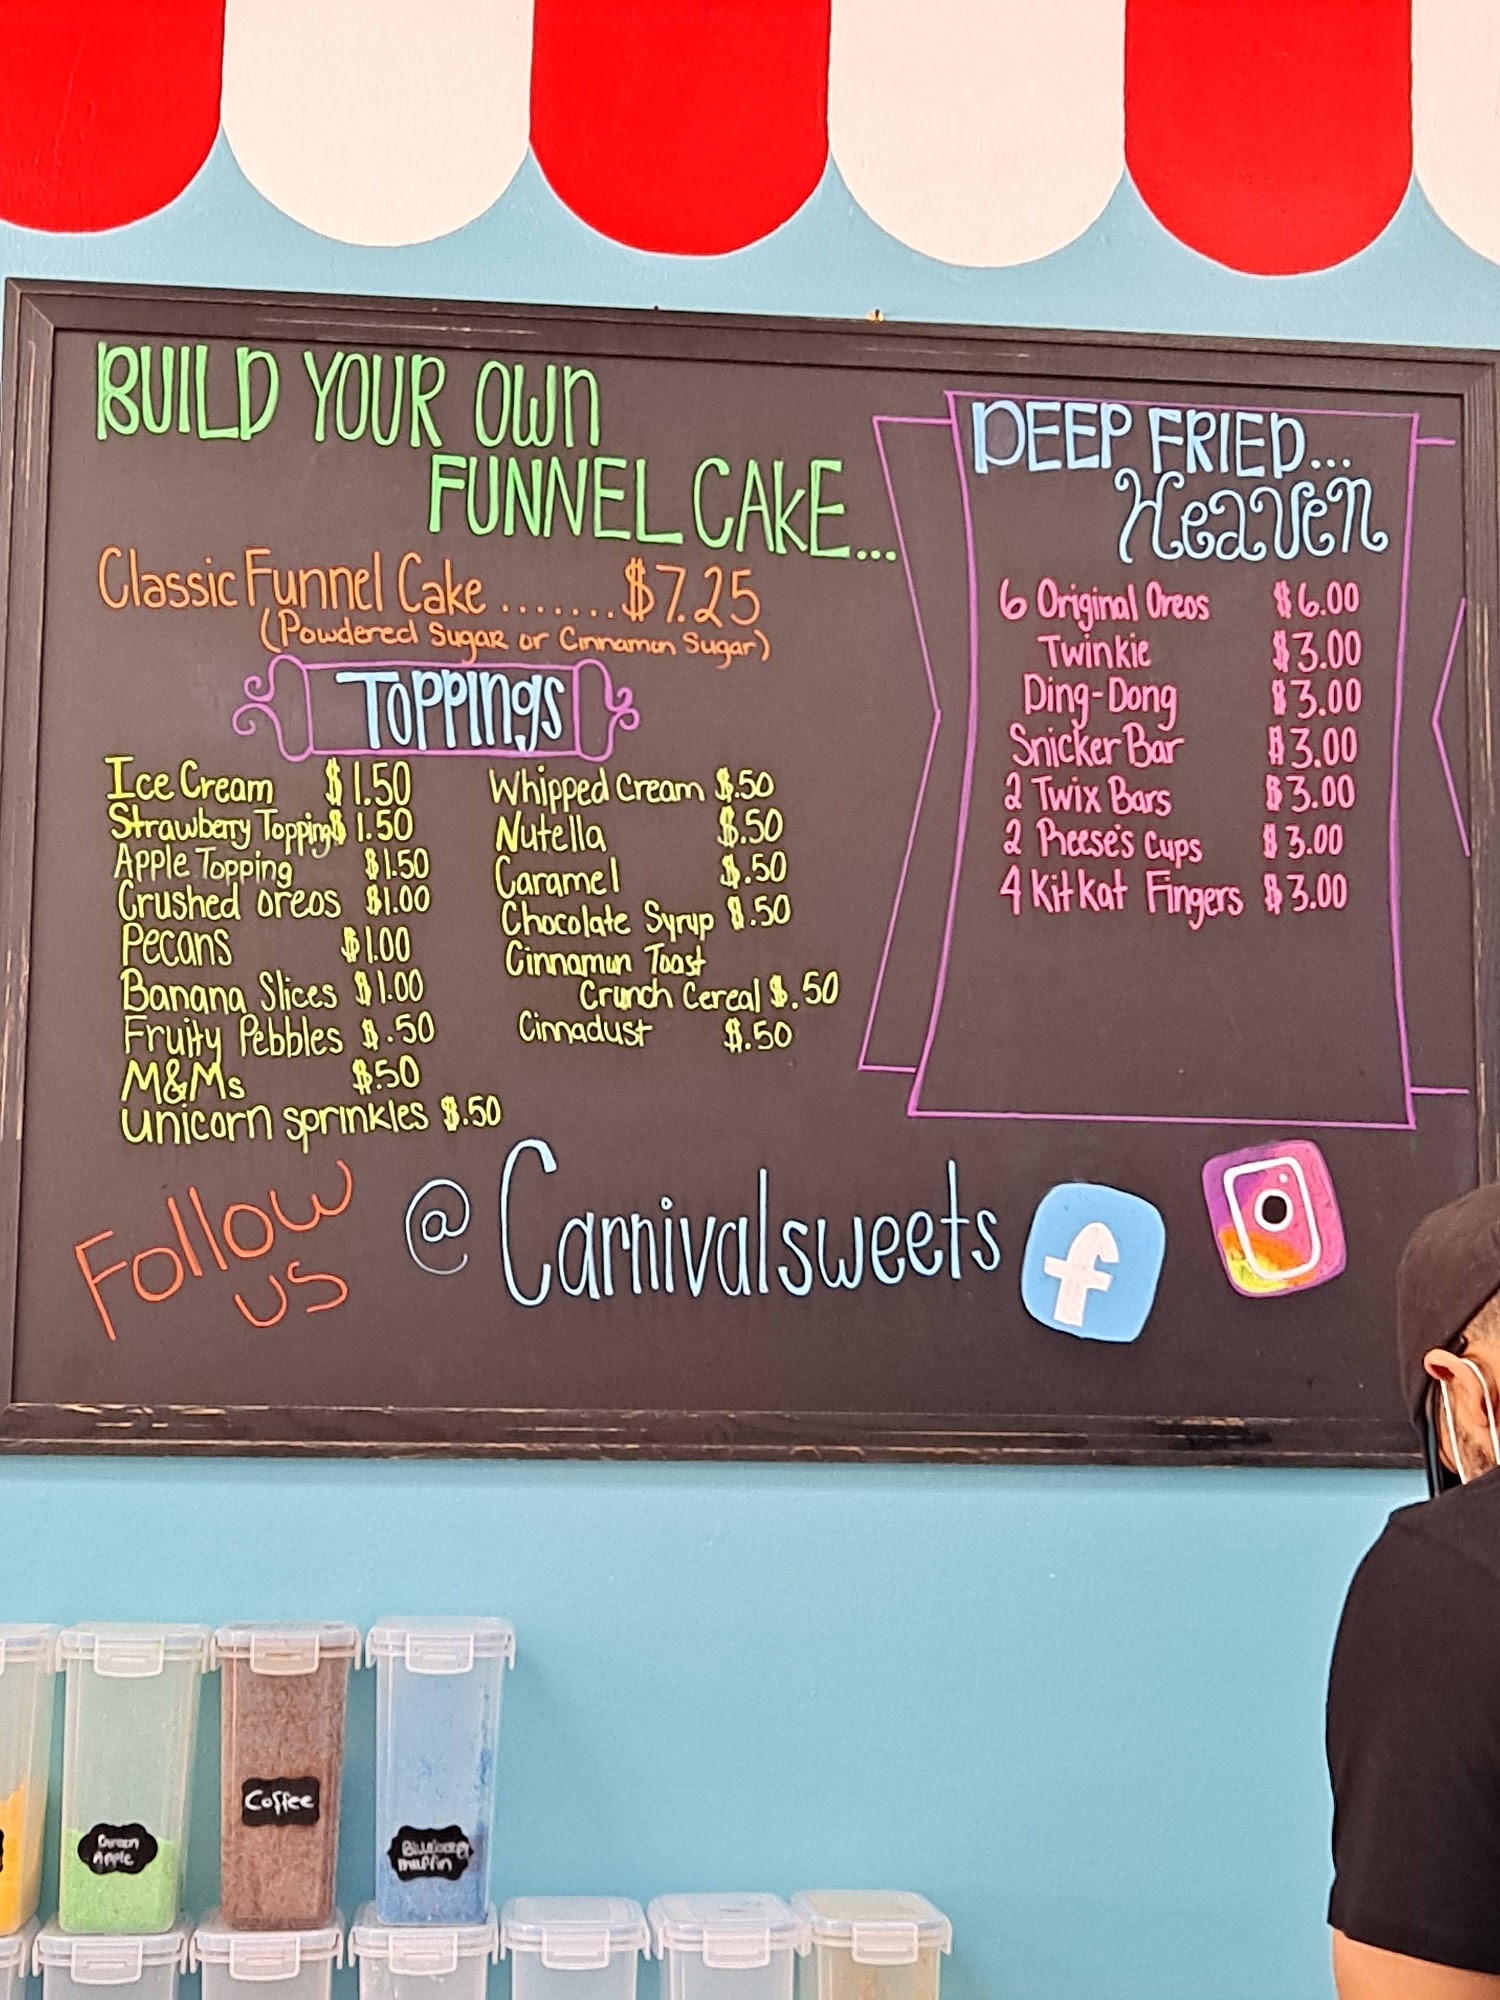 BUILD YOUR OWN
FUNNEL CAKE...
Classic Funnel Cake ....... $7.25
(Powdered Sugar or Cinnamon Sugar)
Toppings
Ice Cream $1.50
Strawberry Topping $1.50
Apple Topping $1.50
Crushed Oreos $1.00
Pecans $1.00
Banana Slices $1.00
Fruity Pebbles $.50
M&Ms $.50
Unicorn sprinkles $.50
Whipped Cream $.50
Nutella $.50
Caramel $.50
Chocolate Syrup $.50
Cinnamun Toast
Crunch Cereal $.50
Cinnadust $.50
DEEP FRIED...
Heaven
6 Original Oreos $6.00
Twinkie $3.00
Ding-Dong $3.00
Snicker Bar $3.00
2 Twix Bars $3.00
2 Reese's Cups $3.00
4 KitKat Fingers $3.00
Follow
us
@Carnivalsweets
f
Green
Apple
Coffee
Blueberry
muffin